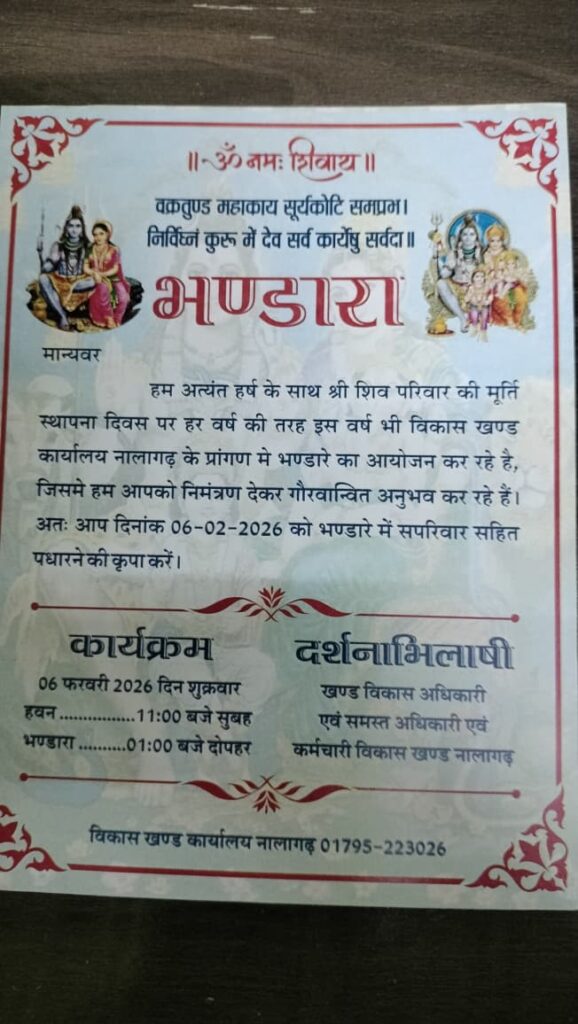 ॥ ॐ नमः शिवाय ॥
वक्रतुण्ड महाकाय सूर्यकोटि समप्रभ।
निर्विघ्नं कुरू में देव सर्व कार्येषु सर्वदा॥
भण्डारा
मान्यवर
हम अत्यंत हर्ष के साथ श्री शिव परिवार की मूर्ति
स्थापना दिवस पर हर वर्ष की तरह इस वर्ष भी विकास खण्ड
कार्यालय नालागढ़ के प्रांगण मे भण्डारे का आयोजन कर रहे है,
जिसमे हम आपको निमंत्रण देकर गौरवान्वित अनुभव कर रहे हैं।
अतः आप दिनांक 06-02-2026 को भण्डारे में सपरिवार सहित
पधारने की कृपा करें।
कार्यक्रम
06 फरवरी 2026 दिन शुक्रवार
हवन ................11:00 बजे सुबह
भण्डारा ..........01:00 बजे दोपहर
दर्शनाभिलाषी
खण्ड विकास अधिकारी
एवं समस्त अधिकारी एवं
कर्मचारी विकास खण्ड नालागढ़
विकास खण्ड कार्यालय नालागढ़ 01795-223026